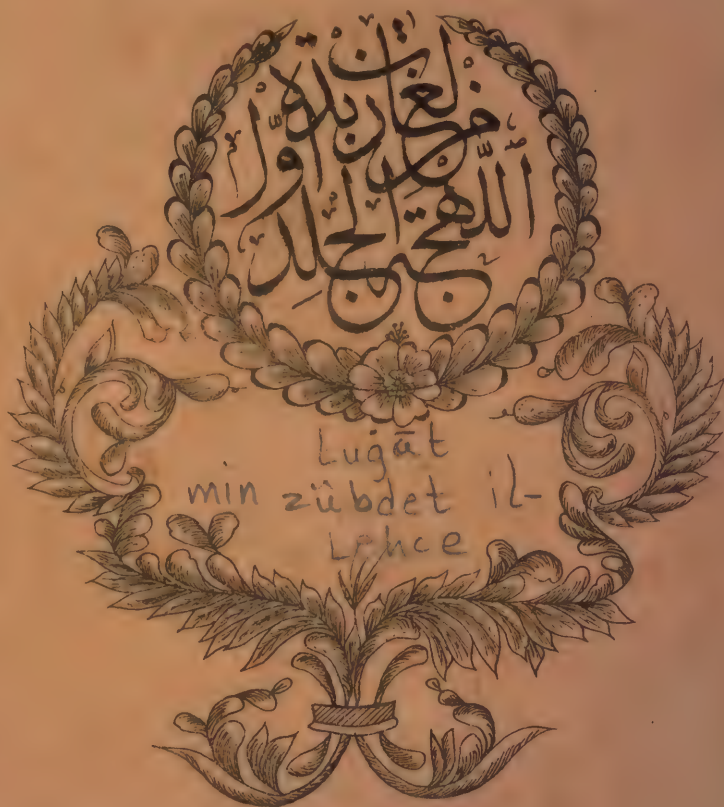 لغات
من زبدة
اللهجة الجلد اوّل
Luġāt
min zübdet il-
Lehce